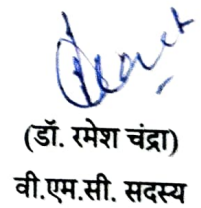 (डॉ. रमेश चंद्रा)
वी.एम.सी. सदस्य